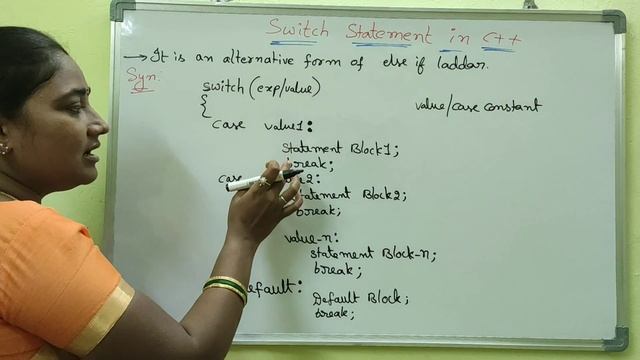 Switch Statement in C++
→ It is an alternative form of else if ladder.
Syn:
switch (exp/value)
{
value/case constant
case value1:
statement Block1;
break;
case
statement Block2;
break;
value-n:
statement Block-n;
break;
Default Block;
break;